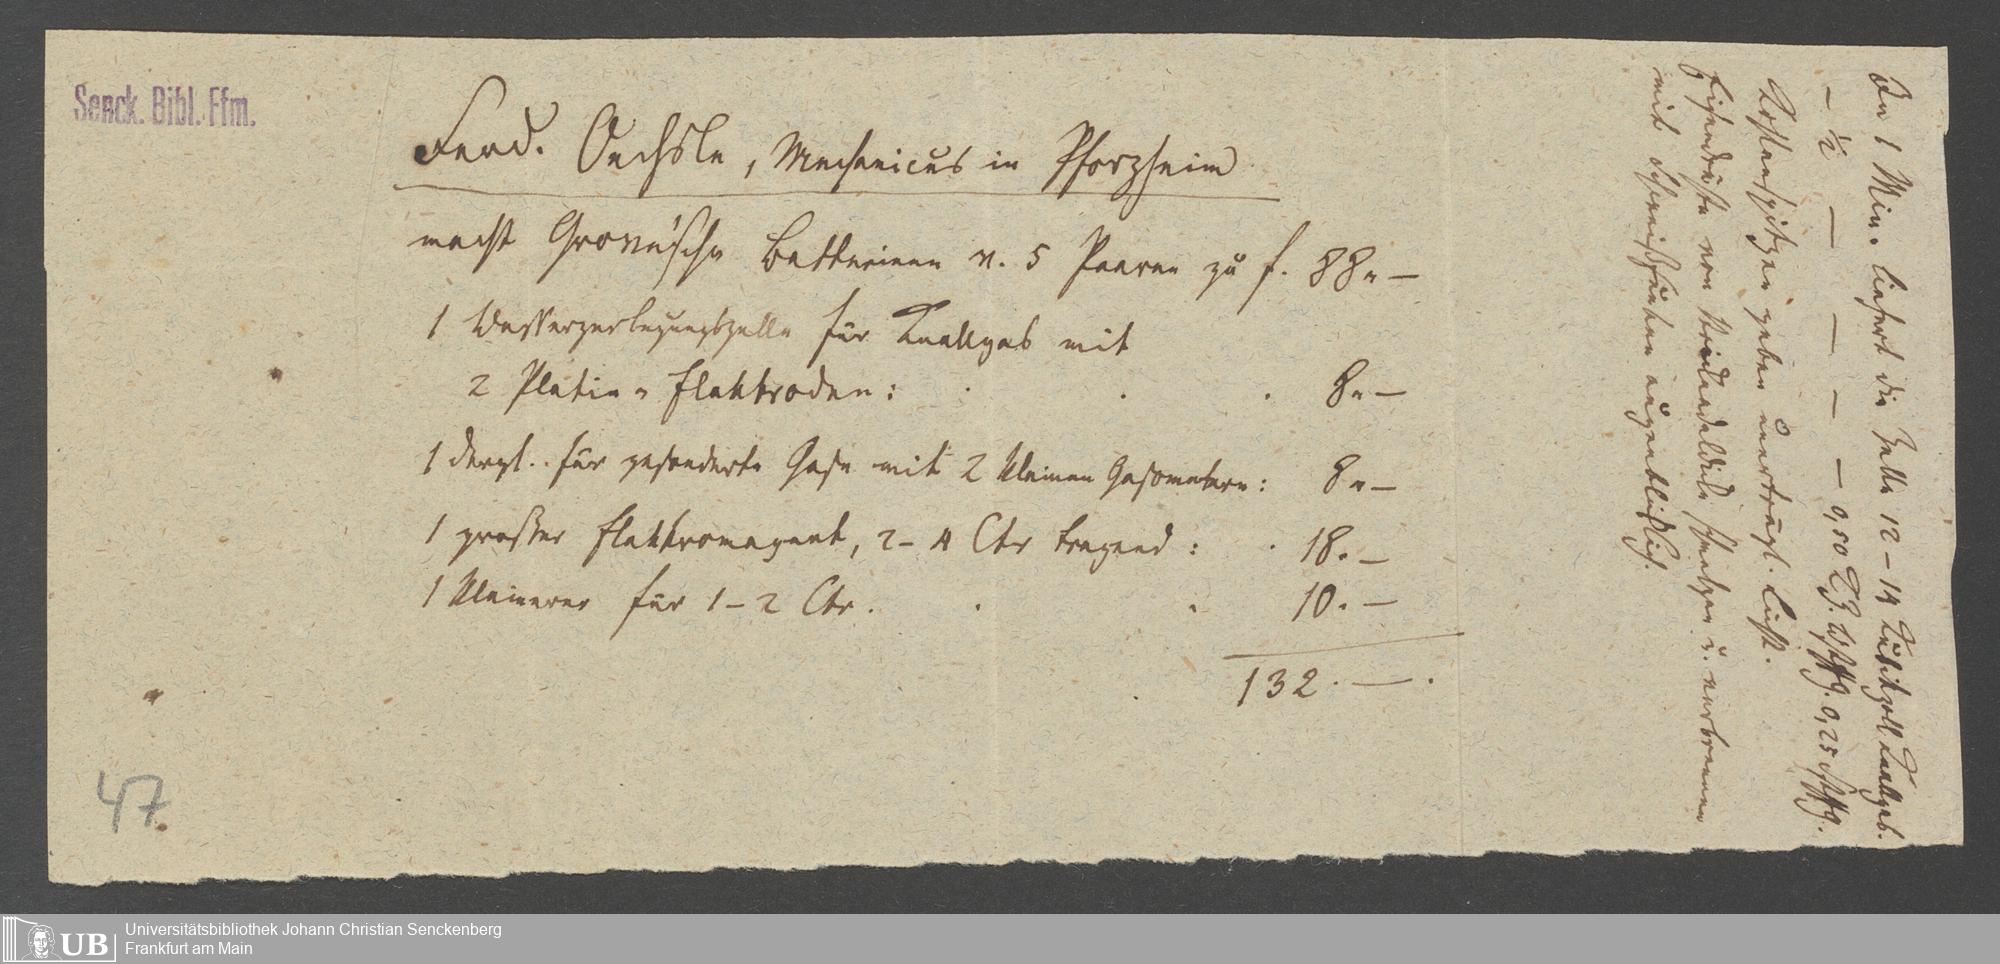 Senck. Bibl. Ffm.
Ferd. Oechsle, Mechanicus in Pforzheim
macht Grove'sche Batterieen v. 5 Paaren zu f. 88.—
1 Wasserzerlegungszelle für Knallgas mit
2 Platin-Elektroden: 8.—
1 dergl. für gesonderte Gase mit 2 kleinen Gasometern: 8.—
1 großer Elektromagnet, 2–4 Ctr tragend: 18.—
1 kleinerer für 1–2 Ctr. 10.—
132.—.
In 1 Min. liefert die Zelle 12–14 Kubikzoll Knallgas.
— ½ — — — — 0,50 Wstffg. 0,25 Stffg.
Kohlenspitzen geben unerträgl. Licht.
Eisendrähte von schmelzen u. verbrennen
mit augenblicklich.
47
Universitätsbibliothek Johann Christian Senckenberg
Frankfurt am Main
UB